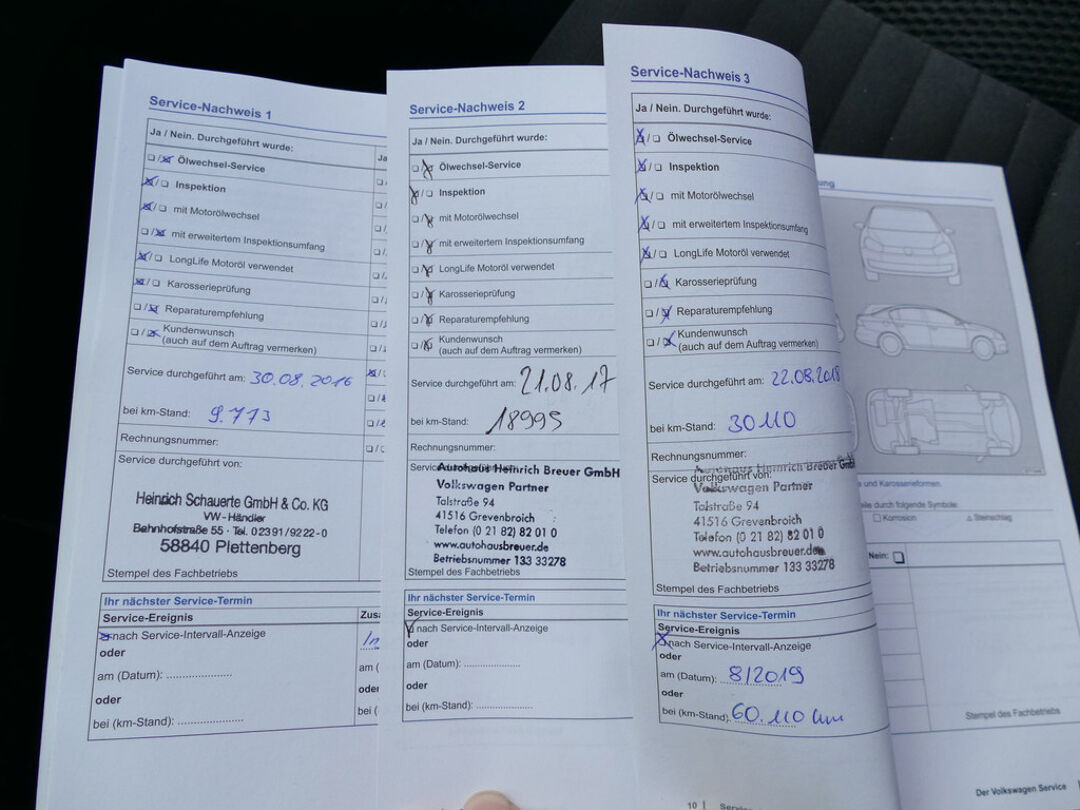 Service-Nachweis 1
Ja / Nein. Durchgeführt wurde:
Ölwechsel-Service
Inspektion
mit Motorölwechsel
mit erweitertem Inspektionsumfang
LongLife Motoröl verwendet
Karosserieprüfung
Reparaturempfehlung
Kundenwunsch
(auch auf dem Auftrag vermerken)
Service durchgeführt am: 30.08.2016
bei km-Stand: 9.773
Rechnungsnummer:
Service durchgeführt von:
Heinrich Schauerte GmbH & Co. KG
VW-Händler
Bahnhofstraße 55 · Tel. 02391/9220-0
58840 Plettenberg
Stempel des Fachbetriebs
Ihr nächster Service-Termin
Service-Ereignis
nach Service-Intervall-Anzeige
oder
am (Datum):
oder
bei (km-Stand):
Ja
Zusa
am (
oder
bei (
Service-Nachweis 2
Ja / Nein. Durchgeführt wurde:
Ölwechsel-Service
Inspektion
mit Motorölwechsel
mit erweitertem Inspektionsumfang
LongLife Motoröl verwendet
Karosserieprüfung
Reparaturempfehlung
Kundenwunsch
(auch auf dem Auftrag vermerken)
Service durchgeführt am: 21.08.17
bei km-Stand: 18995
Rechnungsnummer:
Autohaus Heinrich Breuer GmbH
Volkswagen Partner
Talstraße 94
41516 Grevenbroich
Telefon (0 21 82) 82 01 0
www.autohausbreuer.de
Betriebsnummer 133 33278
Stempel des Fachbetriebs
Ihr nächster Service-Termin
Service-Ereignis
nach Service-Intervall-Anzeige
oder
am (Datum):
oder
bei (km-Stand):
Service-Nachweis 3
Ja / Nein. Durchgeführt wurde:
Ölwechsel-Service
Inspektion
mit Motorölwechsel
mit erweitertem Inspektionsumfang
LongLife Motoröl verwendet
Karosserieprüfung
Reparaturempfehlung
Kundenwunsch
(auch auf dem Auftrag vermerken)
Service durchgeführt am: 22.08.2018
bei km-Stand: 30110
Rechnungsnummer:
Autohaus Heinrich Breuer GmbH
Service durchgeführt von:
Volkswagen Partner
Talstraße 94
41516 Grevenbroich
Telefon (0 21 82) 82 01 0
www.autohausbreuer.de
Betriebsnummer 133 33278
Stempel des Fachbetriebs
Ihr nächster Service-Termin
Service-Ereignis
nach Service-Intervall-Anzeige
oder
am (Datum): 8/2019
oder
bei (km-Stand): 60.110 km
10
und Karosserieformen.
durch folgende Symbole:
Korrosion
Steinschlag
Nein:
Stempel des Fachbetriebs
Der Volkswagen Service